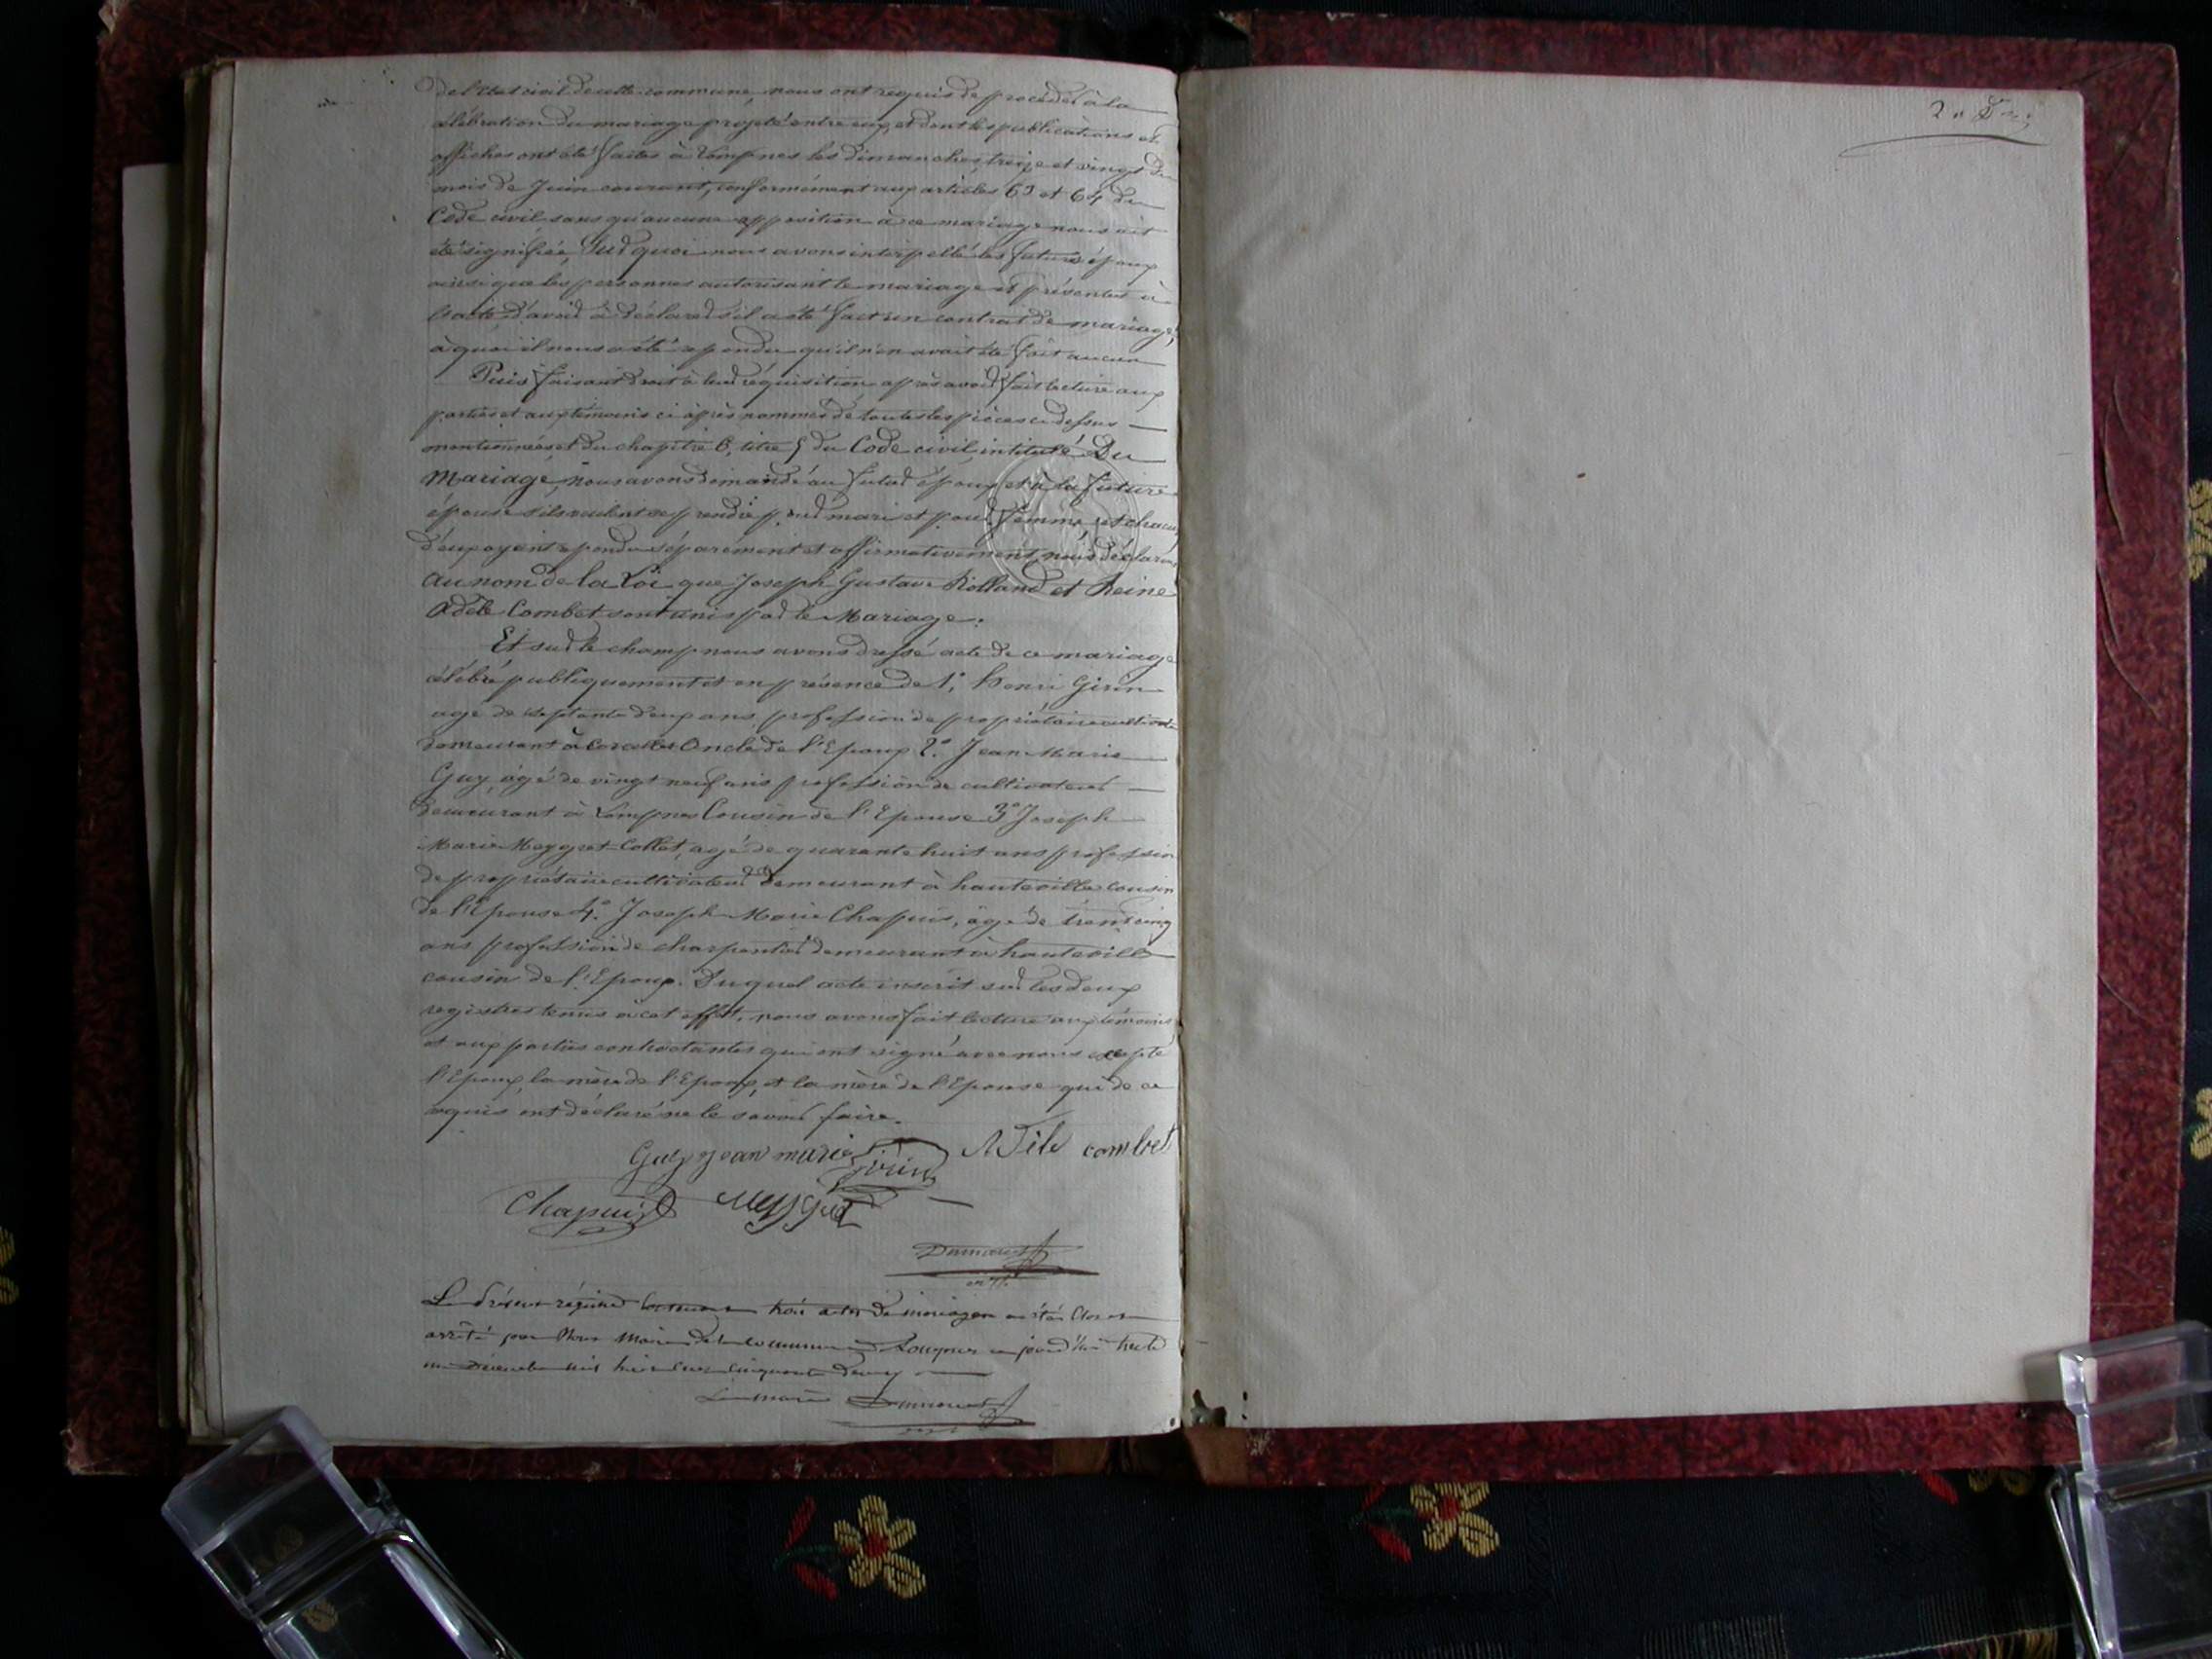 de l'Etat civil de cette commune, nous ont requis de procéder à la
célébration du mariage projeté entre eux, et dont les publications et
affiches ont été faites à Lompnes les dimanches treize et vingt du
mois de Juin courant, conformément aux articles 63 et 64 du
Code civil sans qu'aucune opposition à ce mariage nous ait
été signifiée, Sur quoi nous avons interpellé les futurs époux
ainsi que les personnes autorisant le mariage et présentes à
l'acte d'avoir à déclarer s'il a été fait un contrat de mariage,
à quoi il nous a été répondu qu'il n'en avait été fait aucun
Puis faisant droit à leur réquisition, après avoir fait lecture aux
parties et aux témoins ci après nommés de toutes les pièces ci dessus
mentionnées et du chapitre 6, titre 5 du Code civil, intitulé Du
Mariage, nous avons demandé au futur époux et à la future
épouse s'ils veulent se prendre pour mari et pour femme, et chacun
d'eux ayant répondu séparément et affirmativement, nous déclarons
au nom de la Loi que Joseph Gustave Rolland et Reine
Adèle Combet sont unis par le Mariage.
Et sur le champ nous avons dressé acte de ce mariage
célébré publiquement et en présence de 1° henri Girin
agé de septante deux ans profession de propriétaire cultivateur
demeurant à Corcelles Oncle de l'Epoux 2° Jean Marie
Guy, âgé de vingt neuf ans profession de cultivateur
demeurant à Lompnes Cousin de l'Epouse 3° Joseph
Marie Meygret-Collet, agé de quarante huit ans profession
de propriétaire cultivateur demeurant à hauteville cousin
de l'Epouse 4° Joseph Marie Chapuis, âgé de trente cinq
ans profession de charpentier demeurant à hauteville
cousin de l'Epoux. Duquel acte inscrit sur les deux
registres tenus à cet effet, nous avons fait lecture aux témoins
et aux parties contractantes qui ont signé avec nous excepté
l'Epoux, la mère de l'Epoux, et la mère de l'Epouse qui de ce
requis ont déclaré ne le savoir faire.
Guy jean marie Girin Adèle combet
Chapuis Meygret
Le présent régistre contenant trois actes de mariages a été Clos et
arrêté par Nous Maire de la commune de Lompnes ce jourd'hui trente
un Décembre mil huit cent cinquante deux
Le maire